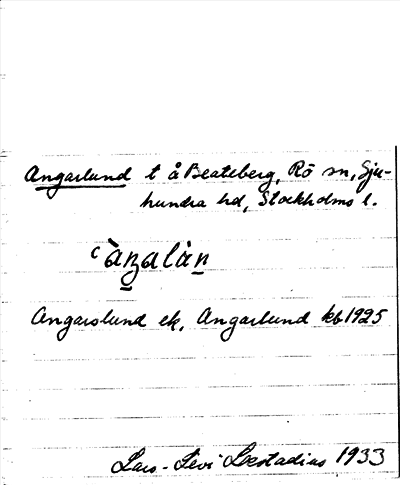 Angarlund t å Beateberg, Rö sn, Sju-
hundra hd, Stockholms l.
Angarslund ek, Angarlund kb 1925
Lars-Levi Læstadius 1933